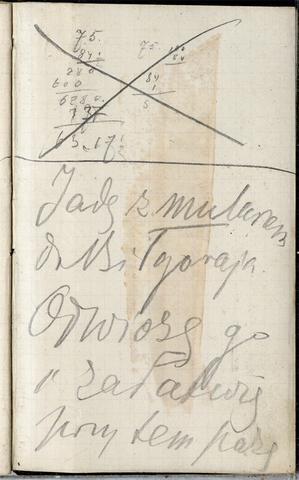 75.
84
280
600
6280.
75.
84
5
Jadę z mularzem
do Biłgoraja.
Odwiozę go
i załatwię
przy tem parę